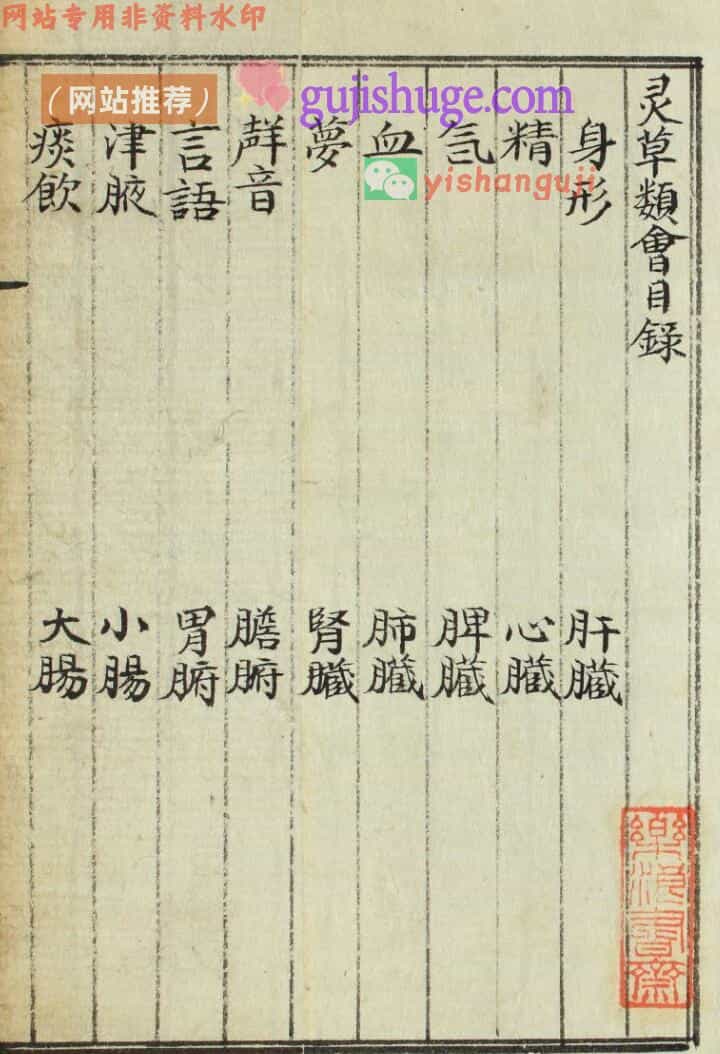 网站专用非资料水印
（网站推荐）
gujishuge.com
yishanguji
灵草類會目錄
身形 肝臓
精 心臓
氣 脾臓
血 肺臓
夢 腎臓
聲音 膽腑
言語 胃腑
津腋 小腸
痰飲 大腸